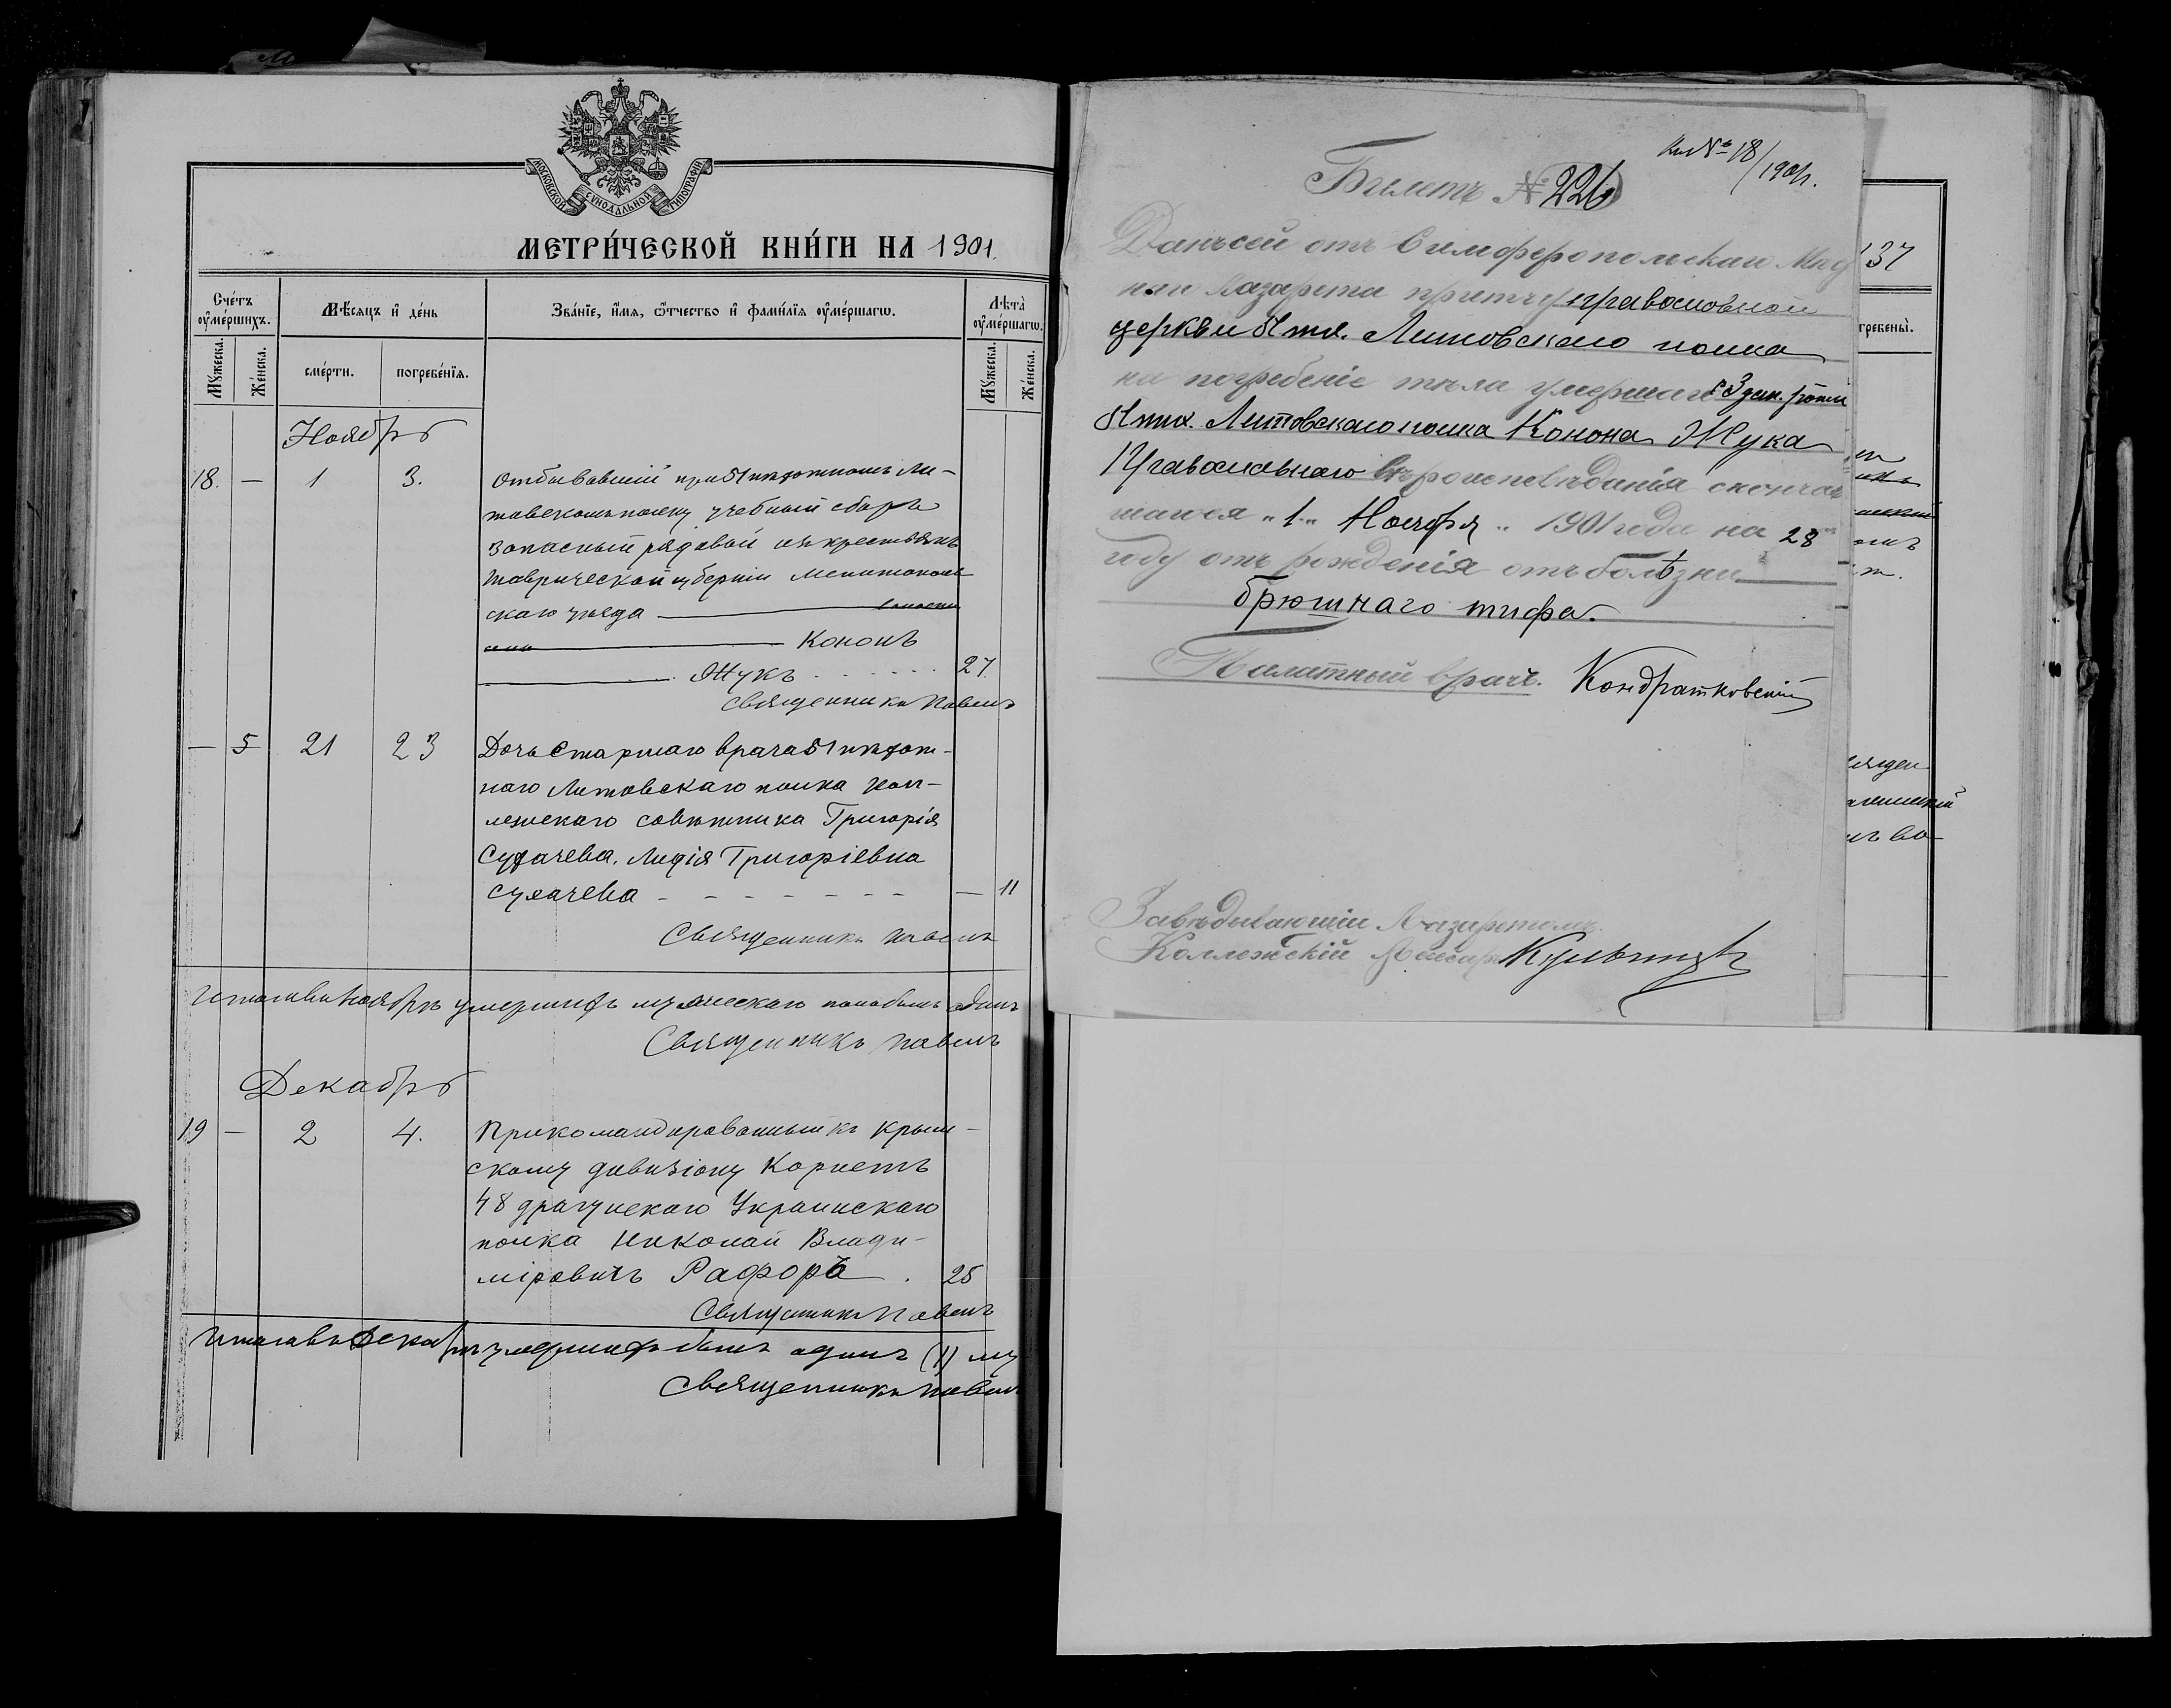 МОСКОВСКОЙ СѴНОДАЛЬНОЙ ТИПОГРАФІИ
МЕТРИ́ЧЕСКОЙ КНИ́ГИ НА 1901.
Сче́тъ ᲂу҆ме́ршихъ.
Мѣ́сяцъ и҆ де́нь
Зва́нїе, и҆́мя, ѻ҆́тчество и҆ фами́лїя ᲂу҆ме́ршагѡ.
Лѣта̀ ᲂу҆ме́ршагѡ.
Му́жеска.
Же́нска.
сме́рти.
погребе́нїя.
Му́жеска.
Же́нска.
Ноябрь
18. — 1 3. Отбывавшій при 51 пѣхотномъ Ли-
товскомъ полку учебный сборъ
запасный рядовой изъ крестьянъ
Таврической губерніи Мелитополь
скаго уѣзда — волости
села — Кононъ
— Жукъ . . . . . . 27.
Священникъ Павелъ
— 5 21 23 Дочь Старшаго врача 51 пѣхот-
наго Литовскаго полка кол-
лежскаго совѣтника Григорія
Сухачева, Лидія Григоріевна
Сухачева - - - - - - - — 11
Священникъ Павелъ
Итого въ Ноябрѣ умершихъ мужескаго пола былъ одинъ
Священникъ Павелъ
Декабрь
19 — 2 4. Прикомандированный къ Крым-
скому дивизіону Корнетъ
48 драгунскаго Украинскаго
полка Николай Влади-
міровичъ Рафоръ . 25
Священникъ Павелъ
Итого въ Декабрѣ умершихъ былъ одинъ (1) му
Священникъ Павелъ
№ 18/1901 г.
Билетъ № 226
Данъ сей отъ Симферопольскаго Мѣст
наго Лазарета причту православной
церкви 51 пѣх. Литовскаго полка
на погребеніе тѣла умершаго роты
51 пѣх. Литовскаго полка Конона Жука
Православнаго вѣроисповѣданія скончав
шагося „1" Ноября 1901 года на 28
году отъ рожденія отъ болѣзни
брюшнаго тифа.
Палатный врачъ. Кондратковскій
Завѣдывающій Лазаретомъ
Коллежскій
137
гребены̀.